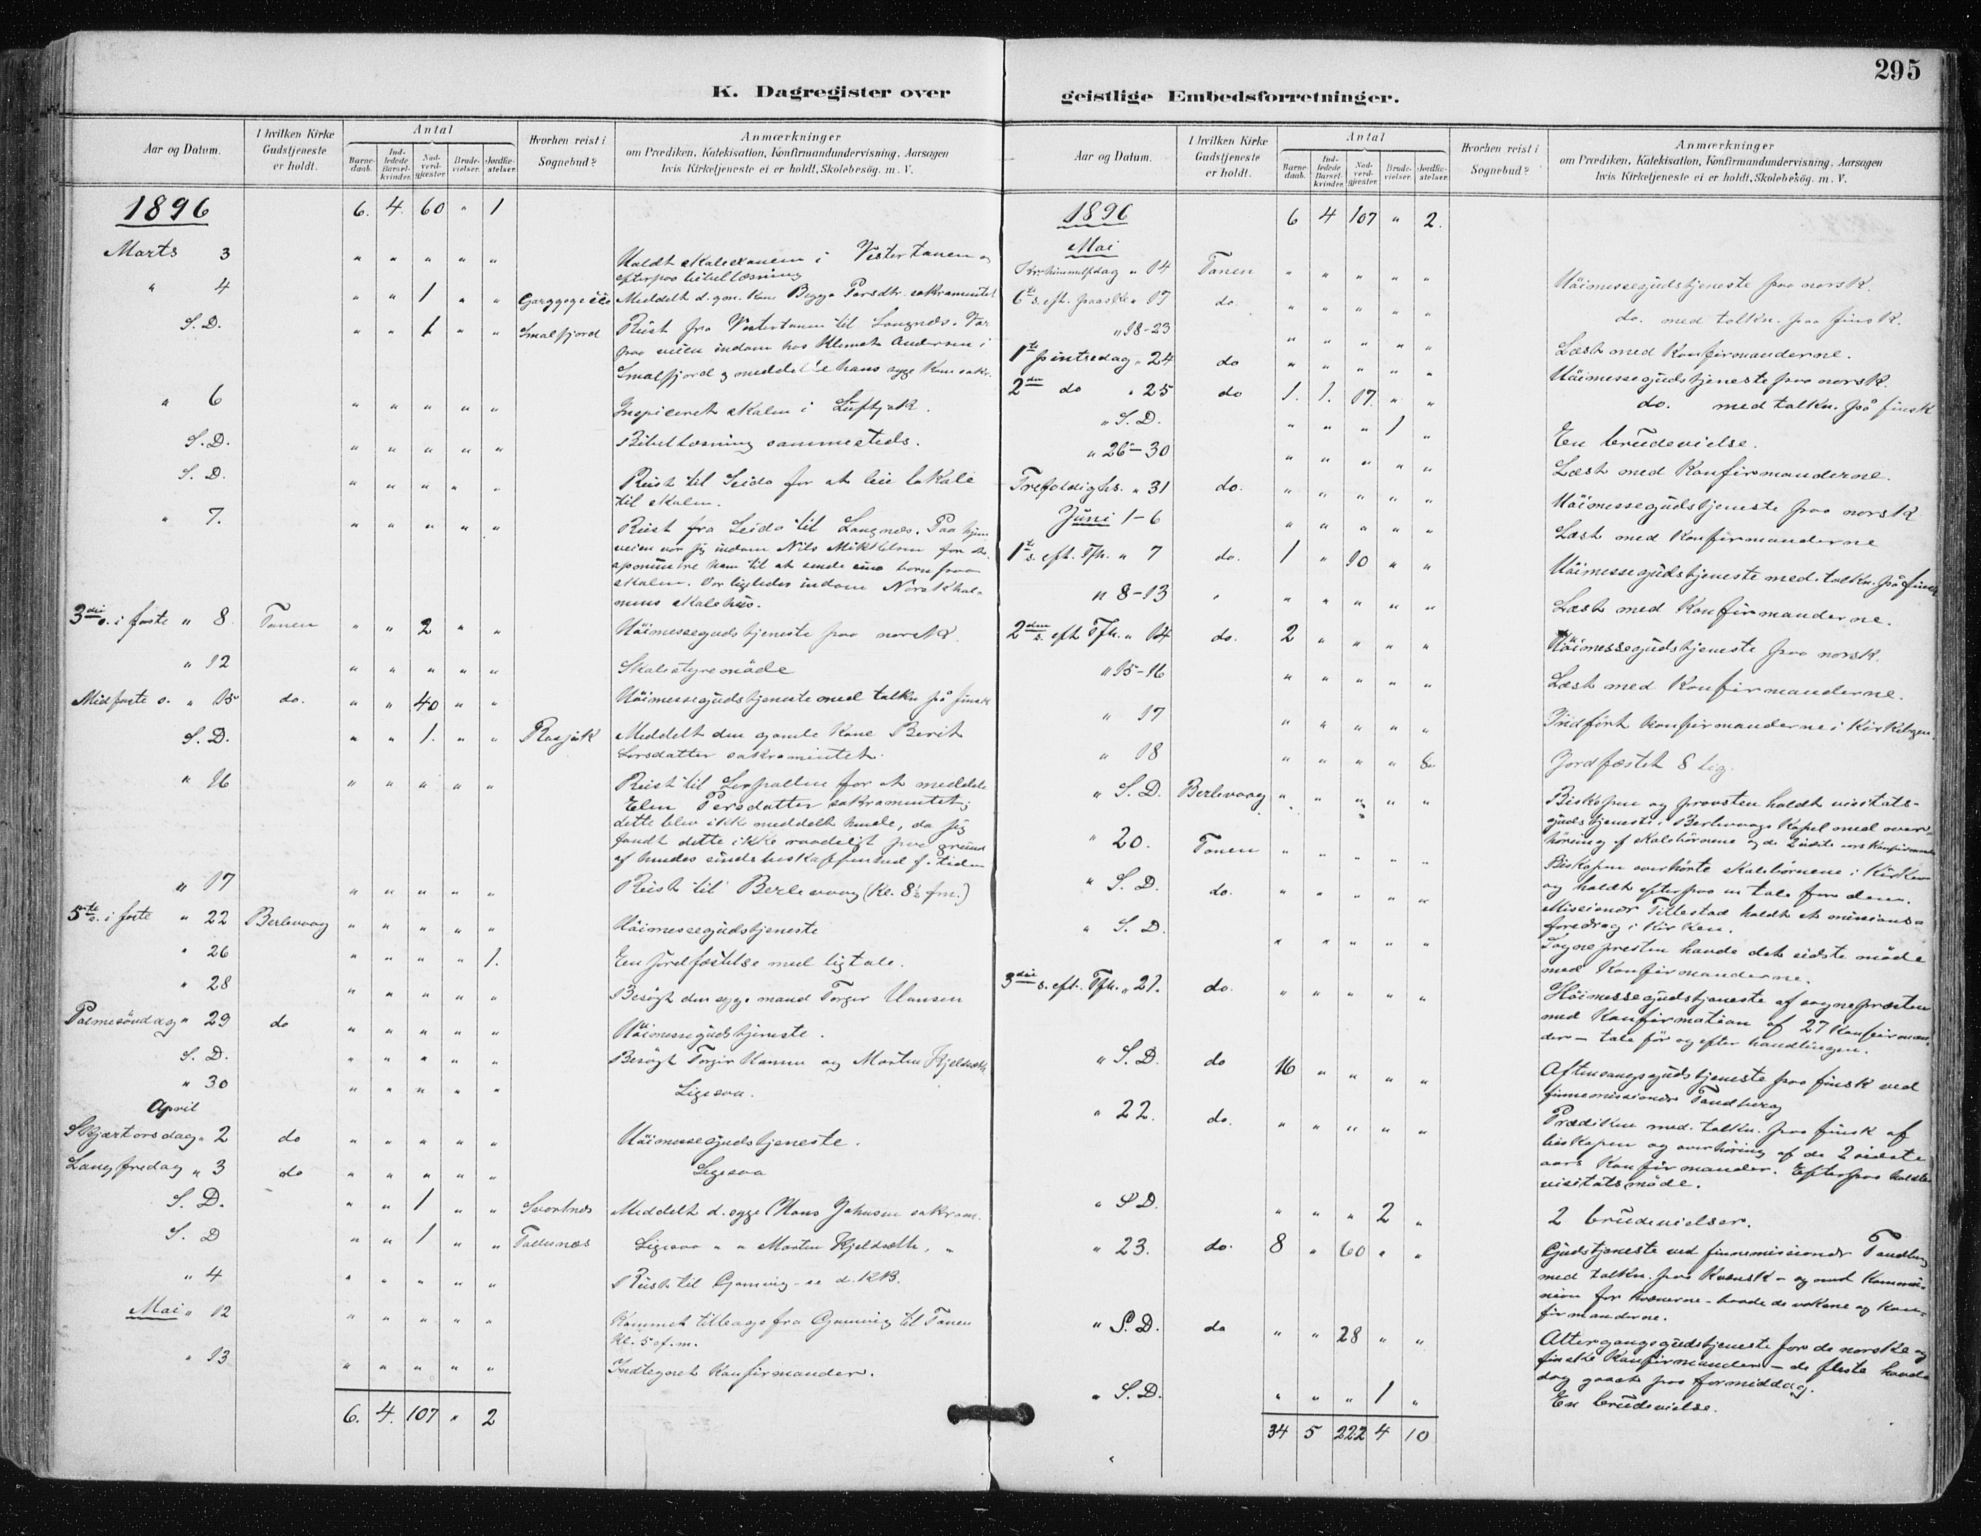 295
K. Dagregister over geistlige Embedsforretninger.
Aar og Datum.
I hvilken Kirke Gudstjeneste er holdt.
Antal
Barnedaab.
Indledede Barselkvinder.
Nadverdgjæster.
Brudevielser.
Jordfæstelser.
Hvorhen reist i Sognebud?
Anmærkninger
om Prædiken, Katekisation, Konfirmandundervisning, Aarsagen
hvis Kirketjeneste ei er holdt, Skolebesøg. m. V.
1896 6. 4. 60 " 1
Marts 3 " " " " " Holdt skoleexamen i Vestertanen og
efterpaa bibellæsning
" 4 " " 1 " " Meddelt d. gm. Kone Sakramentet
S. D. " " 1 " " Smalfjord Reist fra Vestertanen til Langnes. Var
paa veien indom hos Klemet Andersen i
Smalfjord og meddelte hans syge Kone sakr.
" 6 " " " " " Inspiceret skolen i Luftjok.
S. D. " " " " " Bibellæsning sammesteds.
S. D. " " " " " Reist til Seida for at leie lokale
til skolen.
" 7. " " " " " Reist fra Seida til Langnes. Paa hjem
veien var jeg indom Nils Mikkelsen for at
ham til at sende sine børn paa
skolen. Var ligeledes indom Norskhol-
mens skolehus.
3die s. i faste " 8. Tanen " " 2 " " Höimessegudstjeneste paa norsk.
" 12 " " " " " Skolestyremöde
Midfaste s. " 15 do. " " 40 " " Höimessegudstjeneste med tolkn. på finsk
S. D. " " 1. " " Meddelt den gamle Kone Berit
Larsdatter sakramentet.
" 16 " " " " " Reist til for at meddele
Elen Persdatter sakramentet;
dette blev ikke meddelt hende, da jeg
fandt dette ikke raadeligt paa grund
af hendes sindsbeskaffenhed f. tiden
" 17 " " " " " Reist til Berlevaag (Kl. 8½ fm.)
5te s. i faste " 22 Berlevaag " " " " " Höimessegudstjeneste
" 26 " " " " 1. En jordfæstelse med ligtale.
" 28 " " " " " Besøgt den syge mand Torger Hansen
Palmesöndag " 29 do " " " " " Höimessegudstjeneste.
S. D. " " " " " Besøgt Torger Hansen og Morten Kjeldsæth
" 30 " " " " " Ligesaa.
April
Skjærtorsdag " 2 do " " " " " Höimessegudstjeneste.
Langfredag " 3 do " " " " " Ligesaa
S. D. " " 1 " " Svartnes Meddelt d. syge Hans Johnsen sakram.
S. D " " 1 " " Ligesaa " " Morten Kjeldsæth, "
" 4 " " " " " Reist til Gamvig - se d. KB.
Mai " 12 " " " " " Kommet tilbage fra Gamvig til Tanen
Kl. 5 ef. m.
" 13 " " " " " Indtegnet Konfirmander.
6. 4. 107 " 2
Aar og Datum.
I hvilken Kirke Gudstjeneste er holdt.
Antal
Barnedaab.
Indledede Barselkvinder.
Nadverdgjæster.
Brudevielser.
Jordfæstelser.
Hvorhen reist i Sognebud?
Anmærkninger
om Prædiken, Katekisation, Konfirmandundervisning, Aarsagen
hvis Kirketjeneste ei er holdt, Skolebesøg. m. V.
1896 6 4 107 " 2.
Mai
Kr. himmelfdag " 14 Tanen " " " " " Höimessegudstjeneste paa norsk.
6te s. eft. paaske " 17 do. " " " " " do. med tolkn. paa finsk.
" 18-23 " " " " " Læst med Konfirmanderne.
1ste pintsedag " 24 do " " " " " Höimessegudstjeneste paa norsk.
2den do " 25 do 1. 1. 17. " " do. med tolkn. på finsk
" S. D. " " " 1 " En brudevielse.
" 26-30 " " " " " Læst med Konfirmanderne.
Trefoldighs. " 31 do. " " " " " Höimessegudstjeneste paa norsk
Juni 1-6 " " " " " Læst med Konfirmanderne
1ste s. eft. Tfh. " 7 do. 1 " 10 " " Höimessegudstjeneste med tolkn. på finsk
" 8-13 " " " " " Læst med Konfirmanderne.
2den s. eft Tfh. " 14 do. 2 " " " " Höimessegudstjeneste paa norsk.
" 15-16 " " " " " Læst med Konfirmanderne.
" 17 " " " " " Indført konfirmanderne i Kirkebogen.
" 18 " " " " 8. Jordfæstet 8 lig.
" S. D. Berlevaag " " " " " Biskopen og provsten holdt visitats-
gudstjeneste i Berlevaags Kapel med over-
høring af skolebørnene og de 2 sidste aars Konfirmander
" 20. Tanen " " " " " Biskopen overhörte skolebörnene i Kirken
og holdt efterpaa en tale for dem.
" S. D. do. " " " " " Missionær Tillestad holdt et missions-
foredrag i Kirken.
" S. D. " " " " " Sognepresten havde det sidste möde
med Konfirmanderne.
3die s. eft. Tfh. " 21. do. " " " " " Höimessegudstjeneste af sognepræsten
med Konfirmation af 27 Konfirman-
der - tale før og efter handlingen.
" S. D. do 16 " " " " Aftensangsgudstjeneste paa finsk ved
finnemissionær Tandberg
" 22. do. " " " " " Prædiken med tolkn. paa finsk af
biskopen og overhöring af de 2 sidste
aars Konfirmander. Efterpaa holdtes
visitatsmöde.
" S D. " " " 2 " 2 brudevielser.
" 23. do. 8 " 60 " " Gudstjeneste ved finnemissionær Tandberg
med tolkn. paa Kvænsk - og med Kommu-
nion for Kvænerne - baade de voksne og Kon-
firmanderne.
" S. D. do " " 28 " " Altergangsgudstjeneste for de norske og
finske Konfirmander - de fleste havde
dog gaaet paa formiddag.
" S. D. " " " 1 " En brudevielse.
34 5 222 4 10